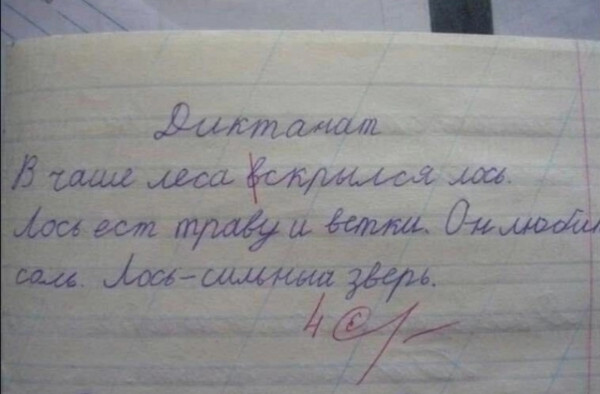 Диктанат
В чаше леса вскрылся лось.
Лось ест траву и ветки. Он любит
соль. Лось-сильныа зверь.
4